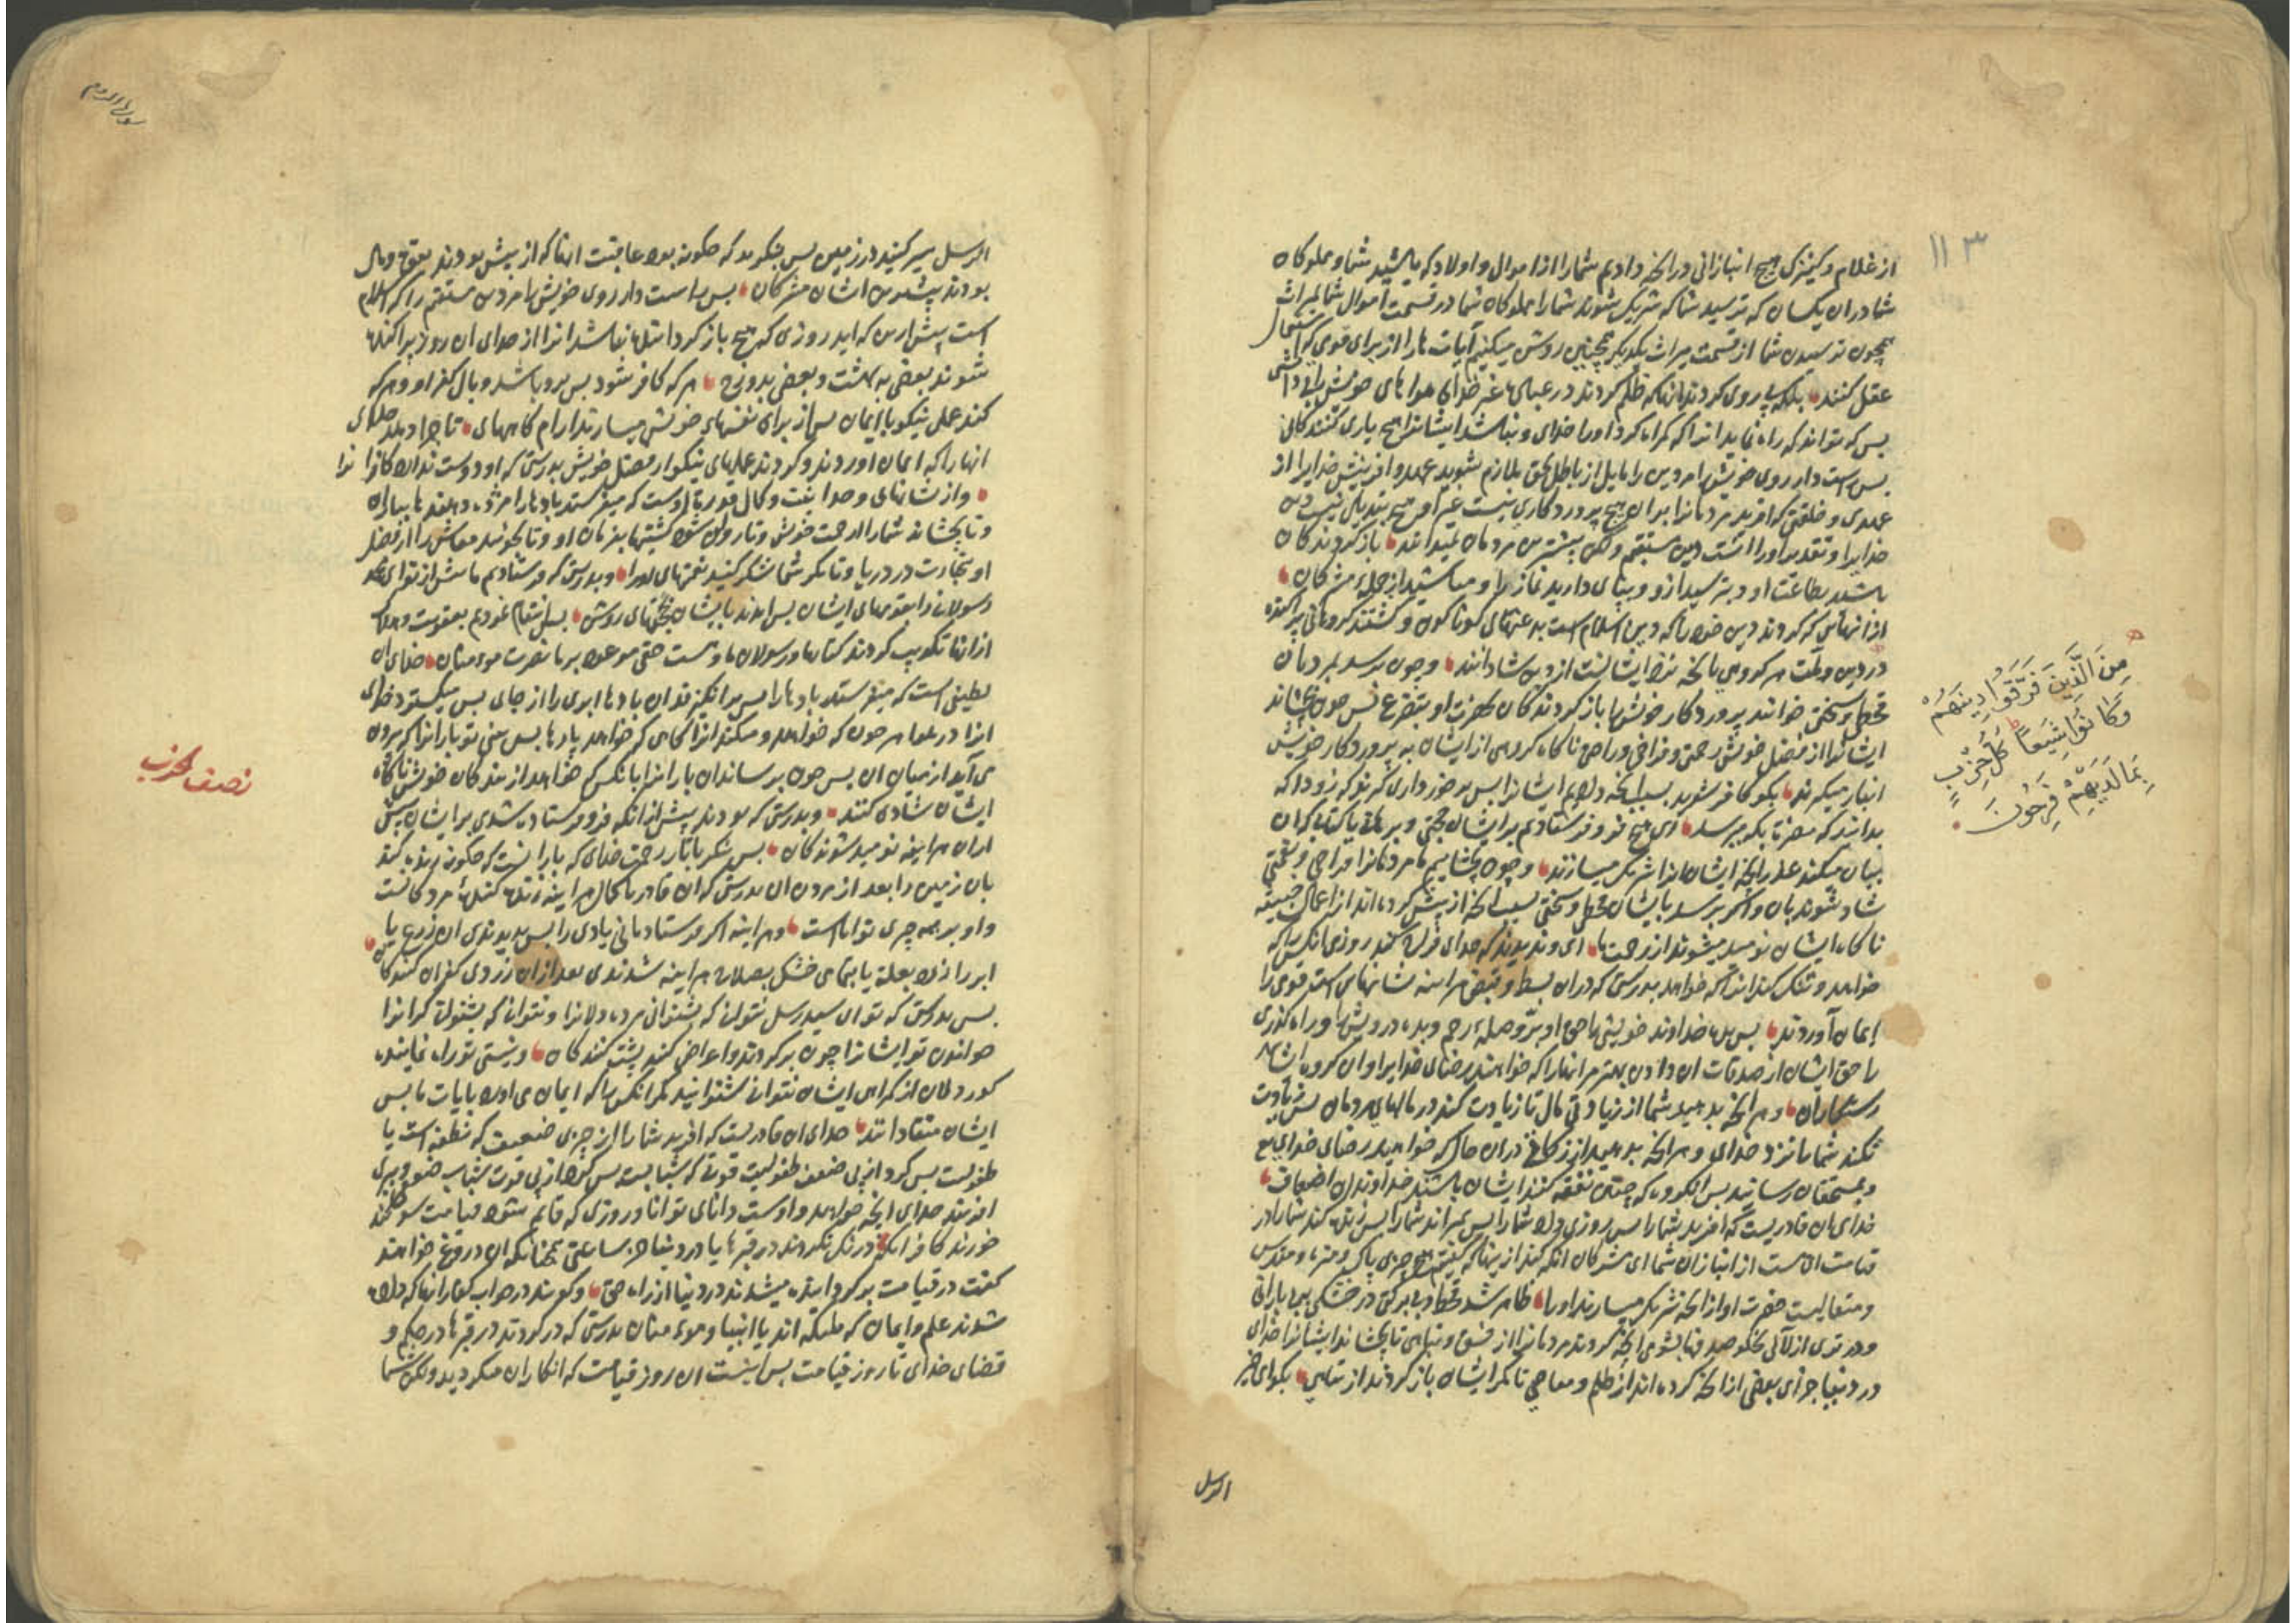 ۱۱۳
از غلام و کنیزک هیچ انبازانی در انچه دادیم شما را از اموال و اولاد که باشید شما و مملوکان
شما دران یکسان که ترسید شما که شریک شوند شما را مملوکان شما در قسمت اموال شما بمیراث
همچون ترسیدن شما از قسمت میراث یکدیگر همچنین روشن میکنیم آیات ها را از برای قومی که استعمال
عقل کنند بلکه پیروی کردند آنها که ظلم کردند در عبادت غیر خدای هواهای خویش را بی دانشی
پس که تواند که راه نماید انرا که کمراه کرد او را خدای و نباشد ایشانرا هیچ یاری کنندکانی
پس راست دار روی خویش را مر دین را مایل از باطل بحق ملازم شوید عهد و افرینش خدایرا از
عهدی و خلقتی که افرید مردمانرا بران هیچ پروردکاری نیست غیر او هیچ تبدیلی نیست دین
خدایرا و تقدیر او را اینست دین مستقیم ولکن بیشترین مردمان نمیدانند باز کردندکان
باشید بطاعت او و بترسید ازو و بپای دارید نماز را و مباشید از جمله مشرکان
از انهائی که کردند دین خود را که دین اسلام است بدعتهای کوناکون و کشتند کروهانی پراکنده
در دین و ملت هر کروهی بانچه نزد ایشانست از دین شادانند و چون برسد بمردمان
قحطی و سختی خوانند پروردکار خویش را باز کردندکان بحضرت او بتضرع پس چون بچشاند
ایشانرا از فضل خویش رحمتی و فراخی و راحتی ناکاه کروهی از ایشان به پروردکار خویش
انباز میکیرند بکو کافر شوید بسبب انچه دادیم ایشانرا پس برخورداری کیرند که زود که
بدانند که مضرت بکه میرسد ای هیچ فرو فرستادیم بر ایشان حجتی و برهانی یا کتابی که ان
بیان میکند علم انچه ایشان مانرا شریک میسازند و چون بچشانیم ما مردمانرا فراخی و نعمتی
شاد شوند بان و اکر برسد بایشان قحطی و سختی بسبب انچه از پیش کرده اند از اعمال خبیثه
ناکاه ایشان نومید میشوند از رحمت ما ای و ندیدند که خدای فراخ کند روزی انکس را که
خواهد و تنک کند انرا که خواهد بدرستی که دران بسط و قبض هراینه نشانهای است قومی را
ایمان آوردند پس بده خداوند خویشی را حق او برّ و صله رحم و بده درویش را و راه کذری
را حق ایشان از صدقات ان دادن بهتر مر انها را که خواهند رضای خدایرا و ان کروه ایشانند
رستکاران و هر انچه بدهید شما از زیادتی مال تا زیادت کند در مالهای مردمان پس زیادت
نکند شما را نزد خدای و هر انچه بدهید از زکاة دران حال که خواهید رضای خدای تع
و بمستحقان رسانید پس انکروه که چنین نفقه کنند ایشان باشند خداوندان اضعاف
خدای ان قادریست که افرید شما را پس روزی داد شما را پس بمیراند شما را پس زنده کند شما را در
قیامت ای هست از انبازان شما ای مشرکان انکه کند از ینها که کفتیم هیچ چیزی پاک و منزه و مقدس
و متعالیست حضرت او از انچه شریک میسازند او را ظاهر شد قحط و بی برکتی در خشکی ببی بارانی
در دنیا جزای بعضی از انچه کرده اند از ظلم و معاصی تا مکر ایشان باز کردند از تباهی بکو ای خیر
الرسل
مِنَ الَّذِينَ فَرَّقُوا دِينَهُمْ
وَكَانُوا شِيَعًا كُلُّ حِزْبٍ
بِمَا لَدَيْهِمْ فَرِحُونَ
سورة الروم
الرسل سیر کنید در زمین پس بنکرید که چکونه بود عاقبت انها که از پیش بودند
بودند بیشترین ایشان مشرکان پس راست دار روی خویش را مر دین مستقیم را که اسلام
است پیش ازین که اید روزی که هیچ باز کرداننده نباشد انرا از خدای ان روز پراکنده
شوند بعضی به بهشت و بعضی بدوزخ هر که کافر شود پس برو باشد وبال کفر او و هر که
کند عملی نیکو باایمان پس از برای نفسهای خویش میسازند ارام کاههای تا جزا دهد خدای
انها را که ایمان اوردند و کردند عملهای نیکو از فضل خویش بدرستی که او دوست ندارد کافرانرا
و از نشانهای وحدانیت و کمال قدرت اوست که میفرستد بادها را مژده دهنده بباران
و تا بچشاند شما را از رحمت خویش و تا روان شود کشتیها بفرمان او و تا بجوئید معاش را از فضل
او بتجارت در دریا و تا مکر شما شکر کنید نعمتهای او را و بدرستی که فرستادیم ما پیش از تو ای محمد
رسولانرا بقومهای ایشان پس امدند بایشان بحجتهای روشن پس انتقام نمودیم بعقوبت و هلاک
ازانها تکذیب کردند کتابها و رسولان ما و هست حقی موعود بر ما نصرت مومنان خدای ان
لطیفی است که میفرستد بادها را پس برانکیزند ان بادها ابری را از جای پس میکسترد خدای
انرا در هوا هر چون که خواهد و میکند انرا کاهی که خواهد پارها پس بینی تو بارانرا که برون
می آید از میان ان پس چون برساند ان بارانرا بانکس که خواهد از بندکان خویش ناکاه
ایشان شادی کنند و بدرستی که بودند پیش از انکه فرو فرستاده شدی بر ایشان پیش
از ان هراینه نومید شوندکان پس بنکر باثار رحمت خدای که بارانست که چکونه زنده کند
بان زمین را بعد از مردن ان بدرستی که ان قادر با کمال هراینه زنده کننده مردکانست
و او بر همه چیزی تواناست و هراینه اکر فرستادمانی بادی را پس بدیدندی ان زرع یا
ابر را زرد هراینه شدندی بعد ازان زردی کفران کنندکان
پس بدرستی که تو ای سید رسل نتوانی که بشنوانی مرده دلانرا و نتوانی که بشنوانی کرانرا
خواندن تو ایشانرا چون برکردند و اعراض کنند پشت کنندکان و نیستی تو راه نماینده
کوردلان از کمراهی ایشان نتوانی شنوانید مکر انکس را که ایمان می اورد بایات ما پس
ایشان منقادانند خدای ان قادریست که افرید شما را از چیزی ضعیف که نطفه است یا
طفولیت پس کرد از پی ضعف طفولیت قوتی که شبابست پس کرد از پی قوت شباب ضعف و پیری
افریند خدای انچه خواهد و اوست دانای توانا و روزی که قایم شود قیامت سوکند
خورند کافران که درنک نکردند در قبرها یا در دنیا جز ساعتی همچنانکه ان دروغ خواهند
کفت در قیامت برکردانیده میشدند در دنیا از راه حق و کویند در جواب کفار انها که داده
شدند علم و ایمان که ملئکه اند یا انبیا و مومنان بدرستی که درنک کردید در قبرها در حکم و
قضای خدای تا روز قیامت پس اینست ان روز قیامت که انکار ان میکردید ولکن شما
نصف الحزب